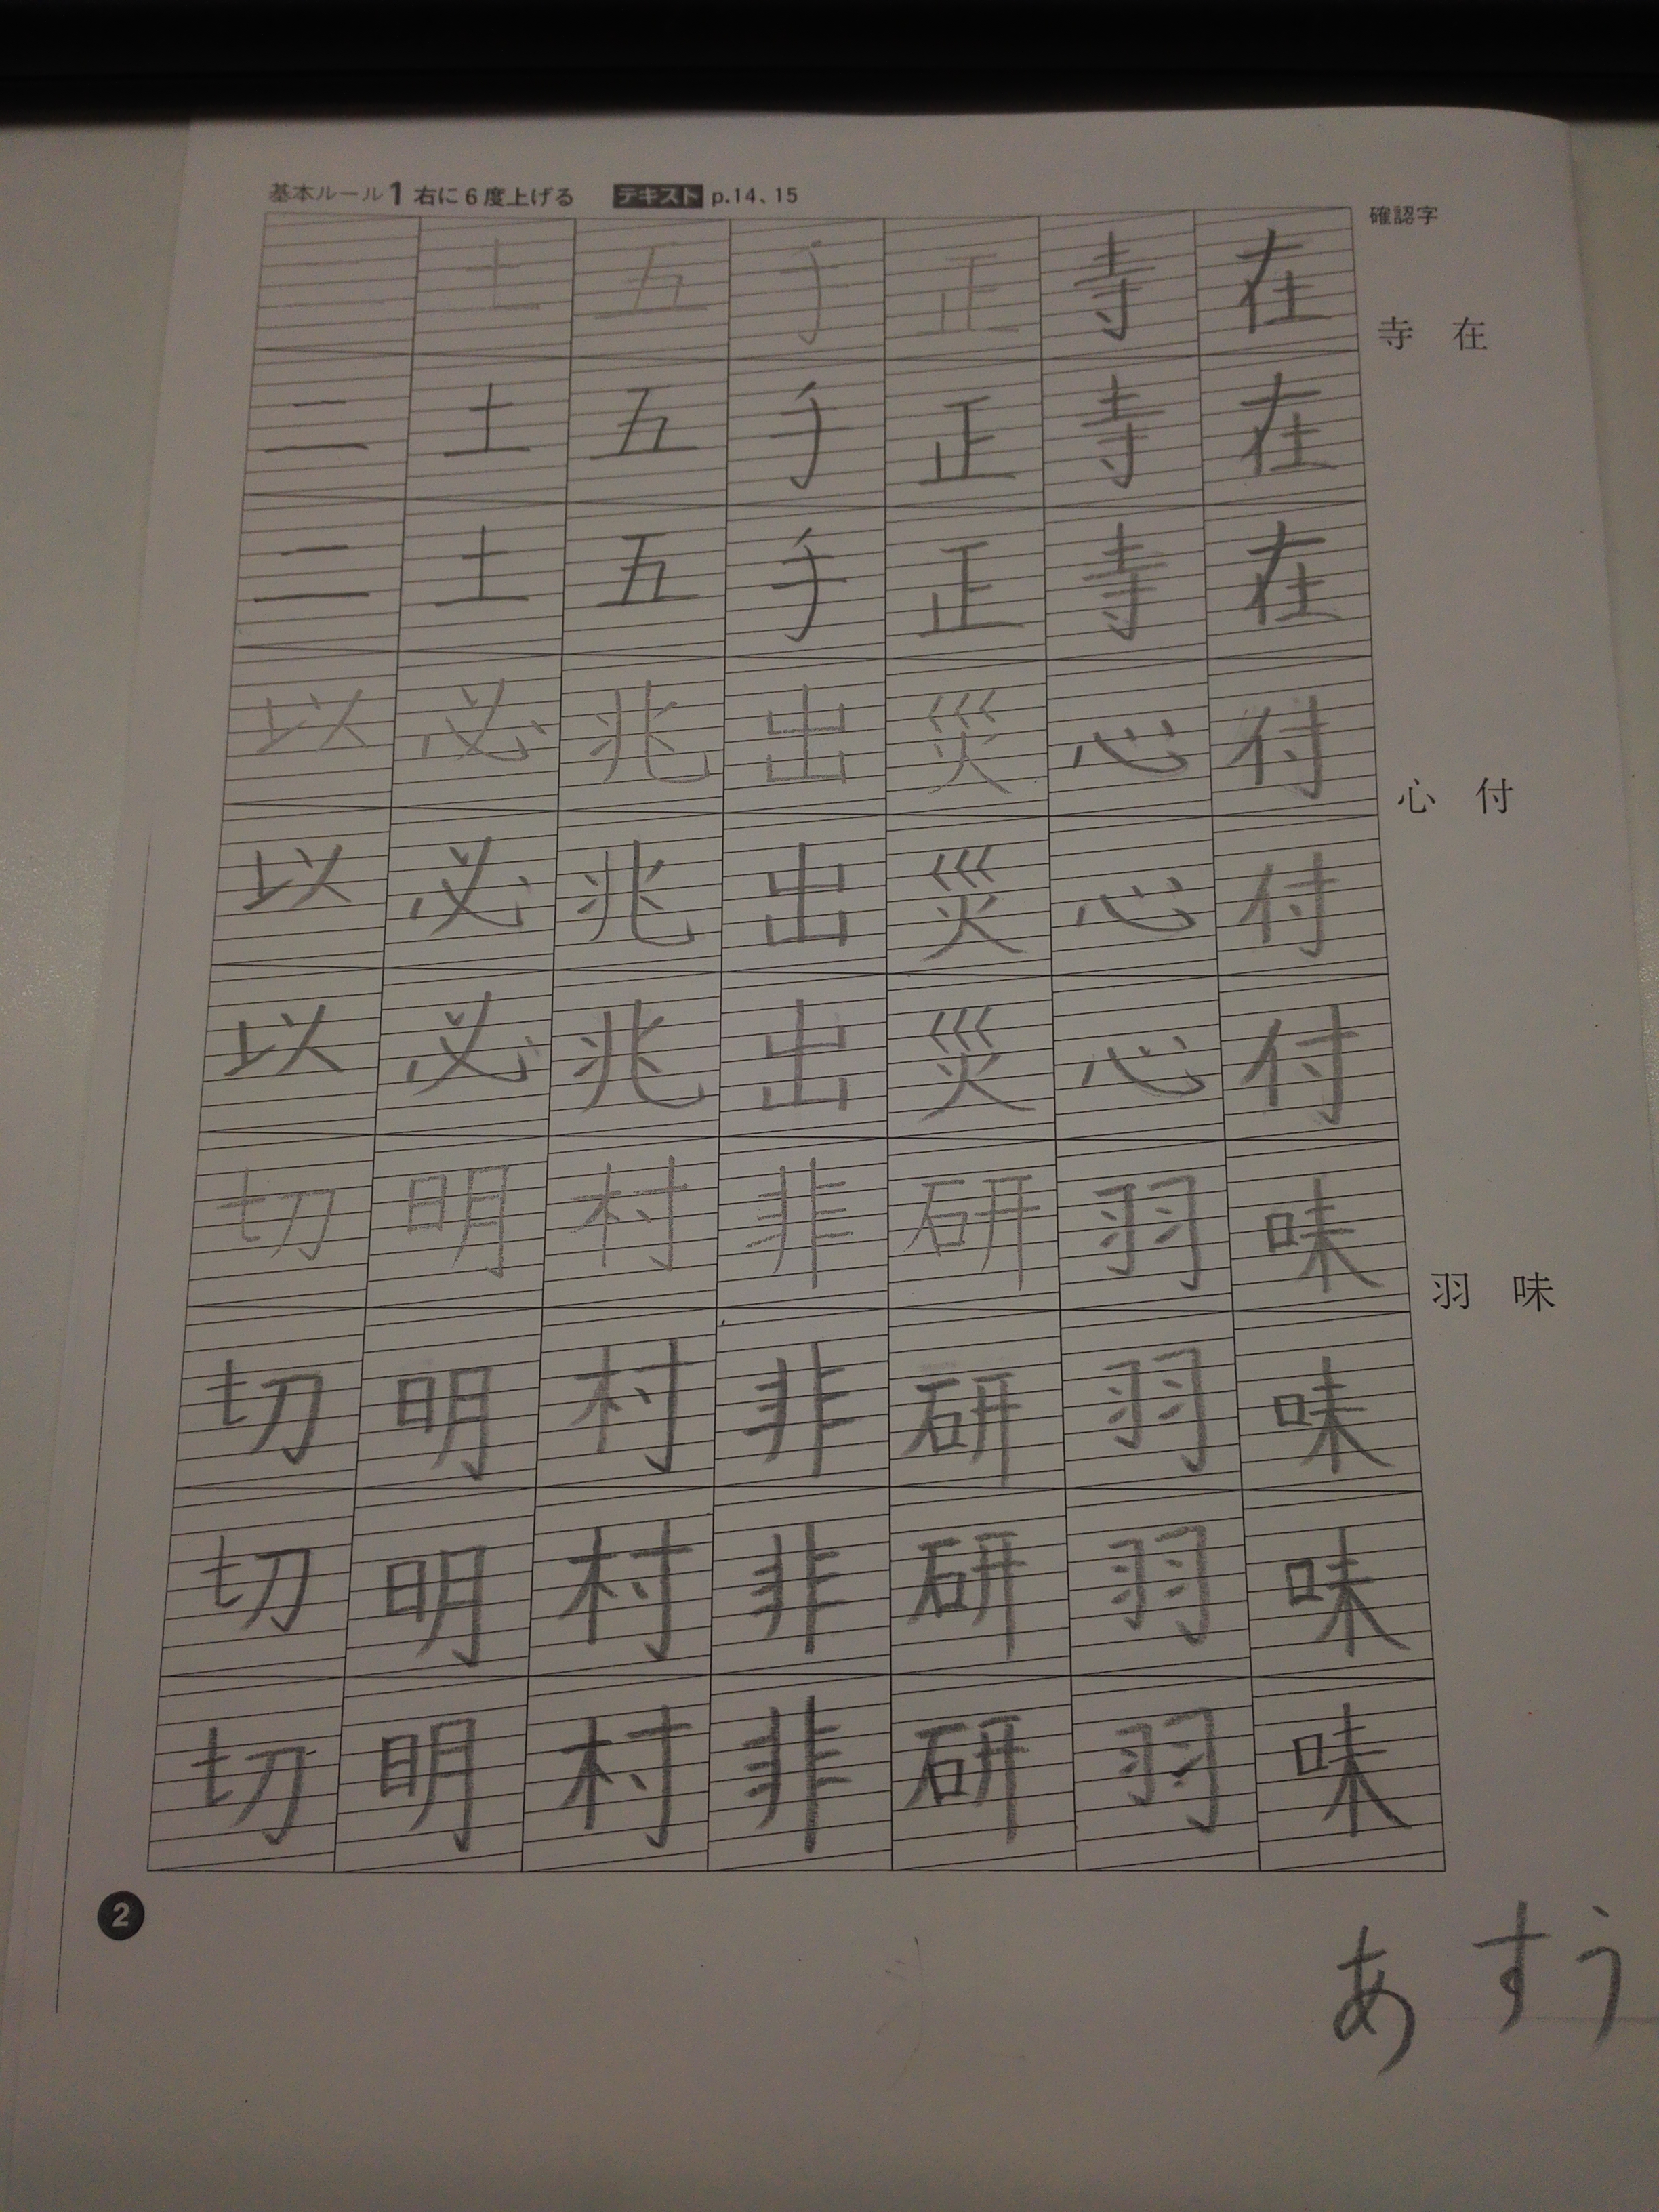 基本ルール1 右に6度上げる テキスト p.14、15
確認字
二 土 五 手 正 寺 在
寺 在
二 土 五 手 正 寺 在
二 土 五 手 正 寺 在
以 必 兆 出 災 心 付
心 付
以 必 兆 出 災 心 付
以 必 兆 出 災 心 付
切 明 村 非 研 羽 味
羽 味
切 明 村 非 研 羽 味
切 明 村 非 研 羽 味
切 明 村 非 研 羽 味
2
あ す う